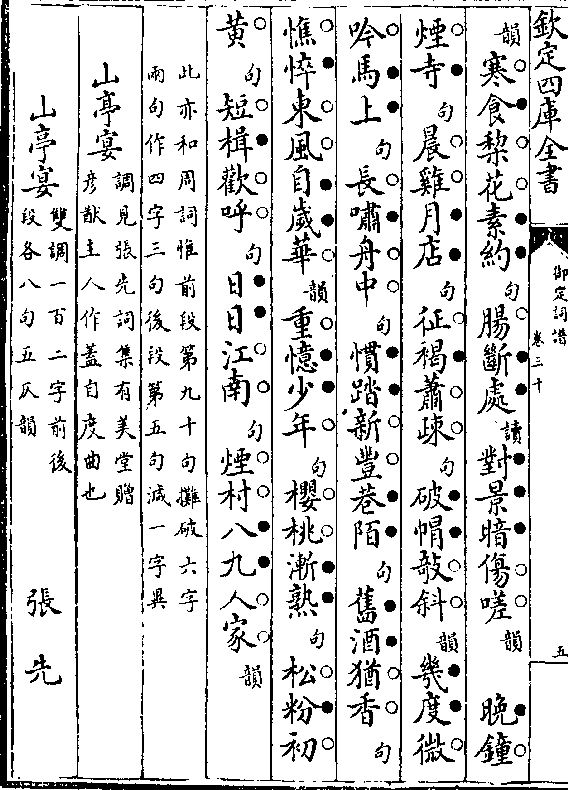 欽定四庫全書
御定詞譜
卷三十
五
韻寒食棃花素約句腸斷處讀對景暗傷嗟韻晚鐘
煙寺句晨雞月店句征褐蕭疎句破帽敧斜韻幾度微
吟馬上句長嘯舟中句慣踏新豐巷陌句舊酒猶香句
憔悴東風自歲華韻重憶少年句櫻桃漸熟句松粉初
黃句短楫歡呼句日日江南句煙村八九人家韻
此亦和周詞惟前段第九十句攤破六字
兩句作四字三句後段第五句減一字異
山亭宴調見張先詞集有美堂贈
彥猷主人作蓋自度曲也
山亭宴雙調一百二字前後
段各八句五仄韻張先